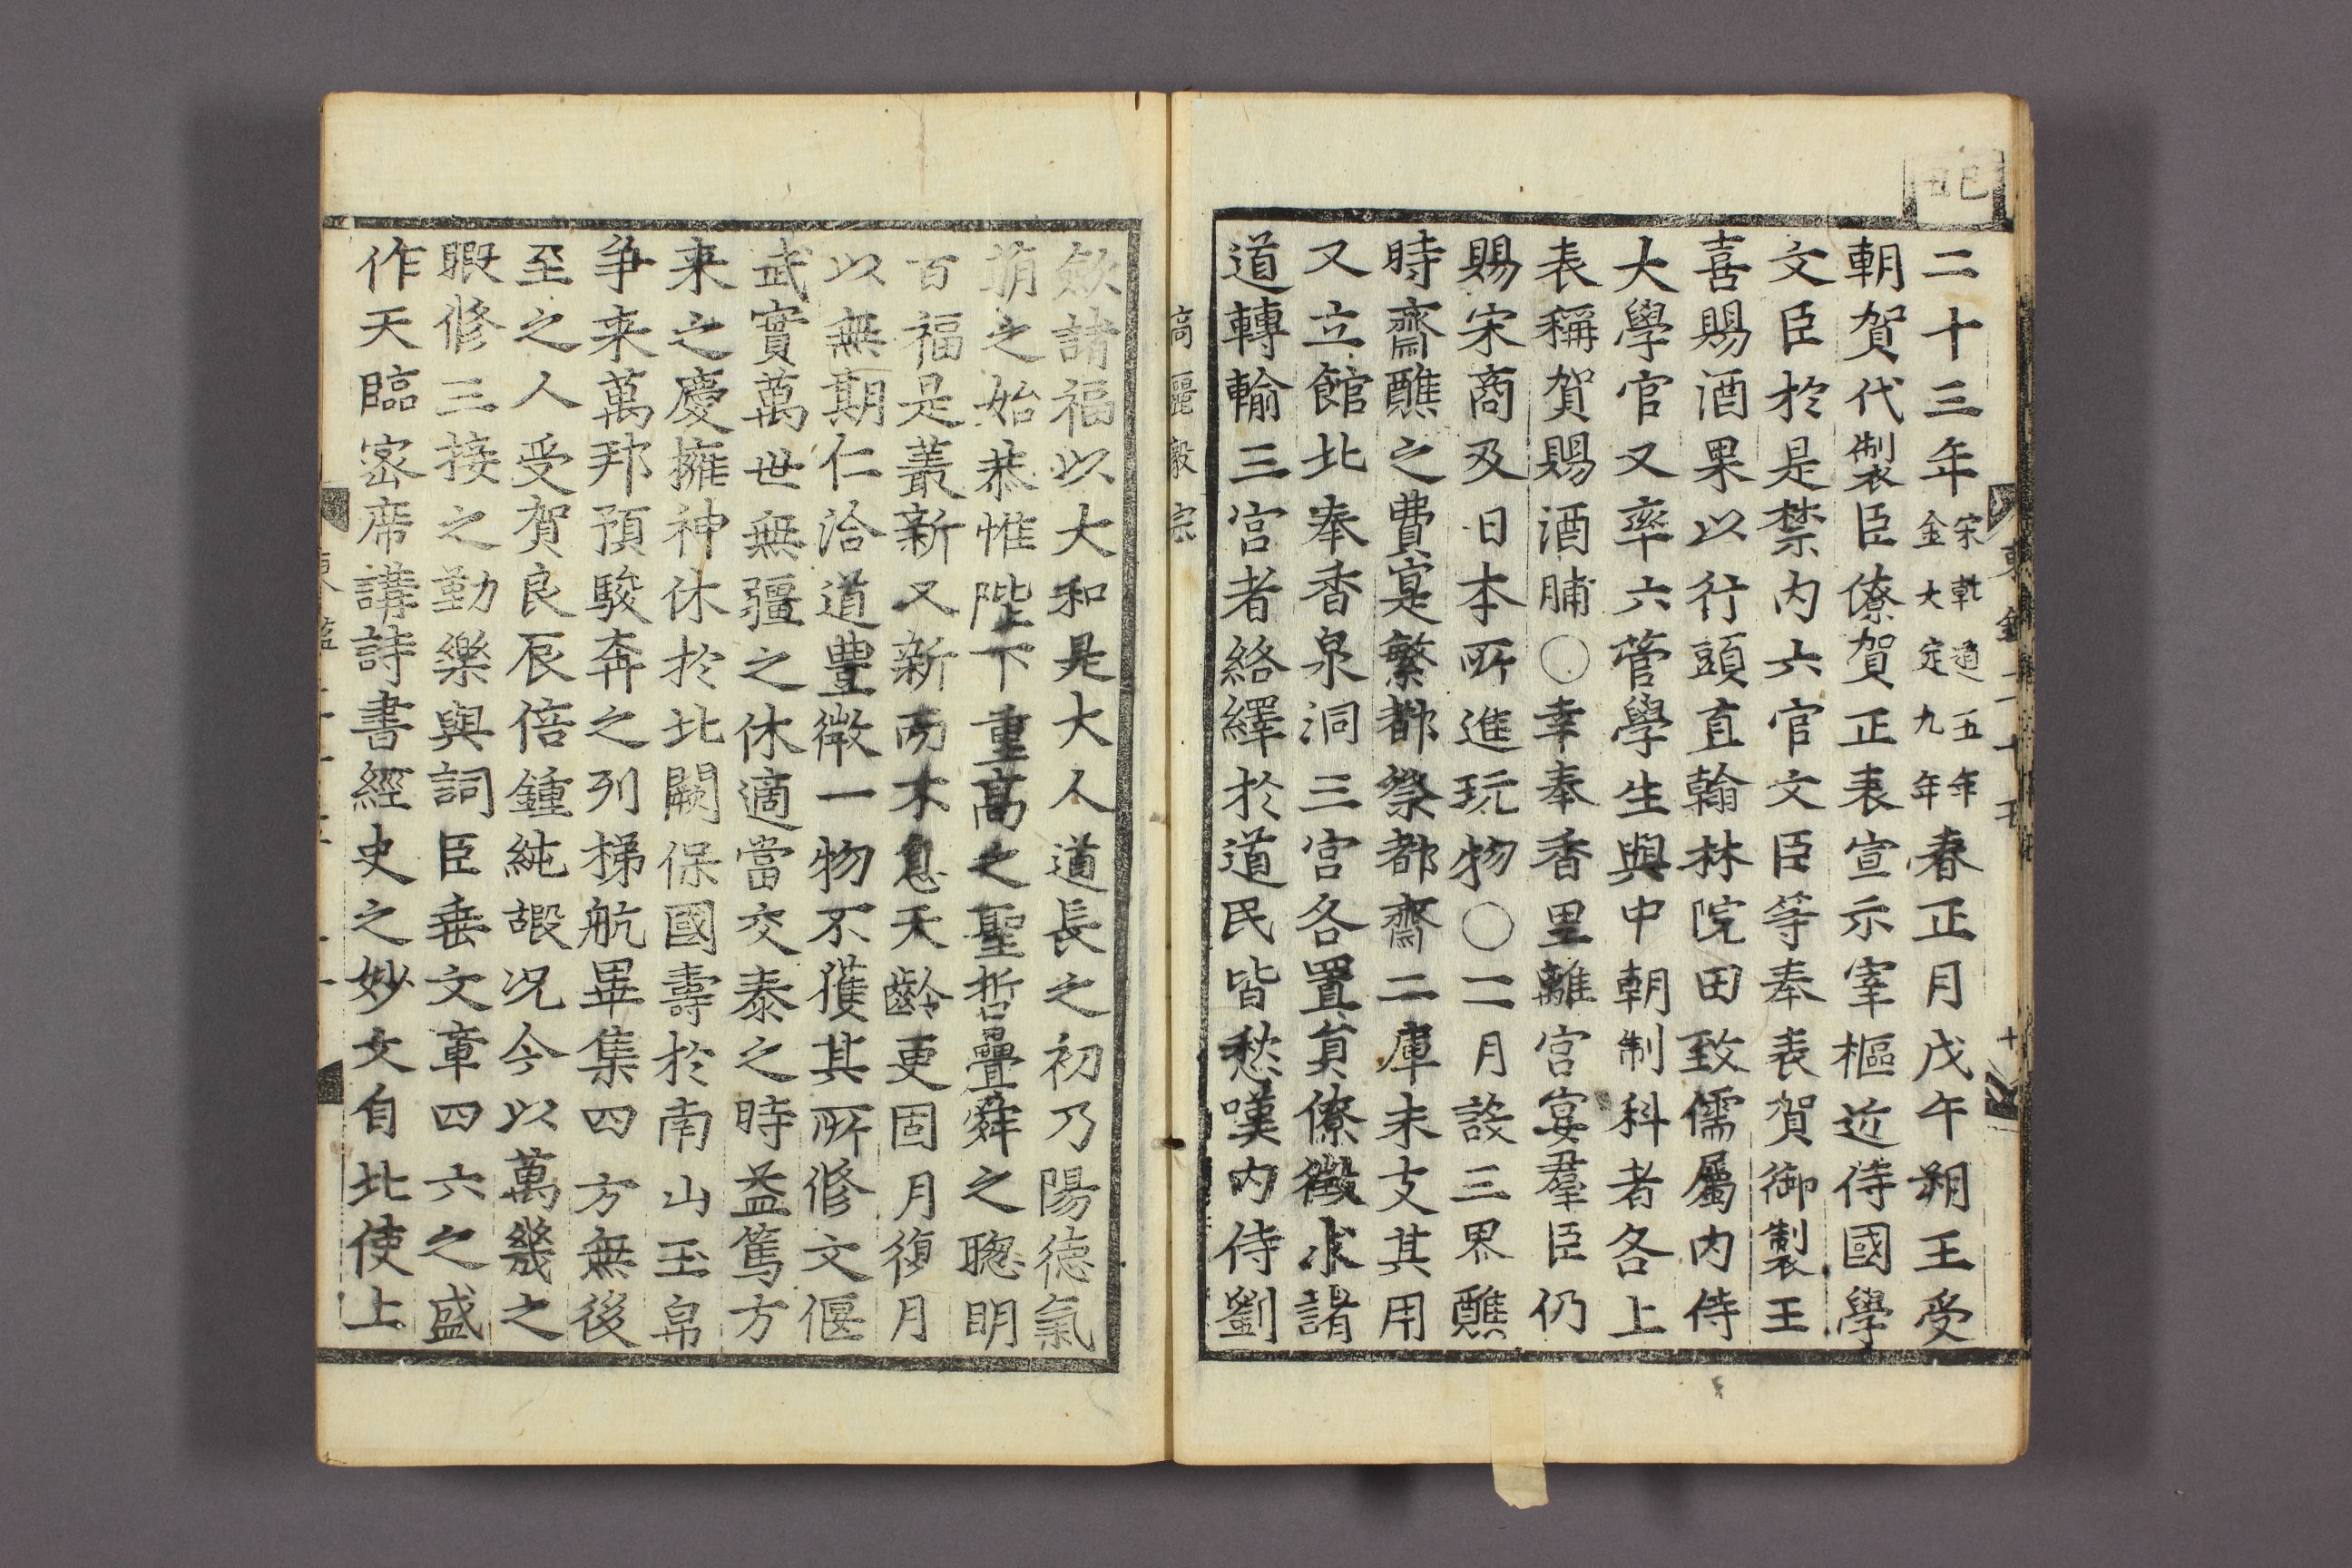 己丑
二十三年宋乾道五年金大定九年春正月戊午朔王受
朝賀代製臣僚賀正表宣示宰樞近侍國學
文臣於是禁內六官文臣等奉表賀御製王
喜賜酒果以行頭直翰林院田致儒屬內侍
大學官又率六管學生與中朝制科者各上
表稱賀賜酒脯○幸奉香里離宮宴羣臣仍
賜宋商及日本所進玩物○二月設三界醮
時齋醮之費寔繁都祭都齋二庫未支其用
又立館北奉香泉洞三宮各置負僚徵求諸
道轉輸三宮者絡繹於道民皆愁嘆內侍劉
高麗毅宗
歛諸福以大和是大人道長之初乃陽德氣
萌之始恭惟陛下重高之聖哲疊舜之聰明
百福是叢新又新而木息天齡更固月復月
以無期仁洽道豊徵一物不獲其所修文偃
武實萬世無疆之休適當交泰之時益篤方
来之慶擁神休於北闕保國壽於南山玉帛
争来萬邦預駿奔之列梯航畢集四方無後
至之人受賀良辰倍鍾純嘏况今以萬幾之
暇修三接之勤樂與詞臣垂文章四六之盛
作天臨宻席講詩書經史之妙文自北使上